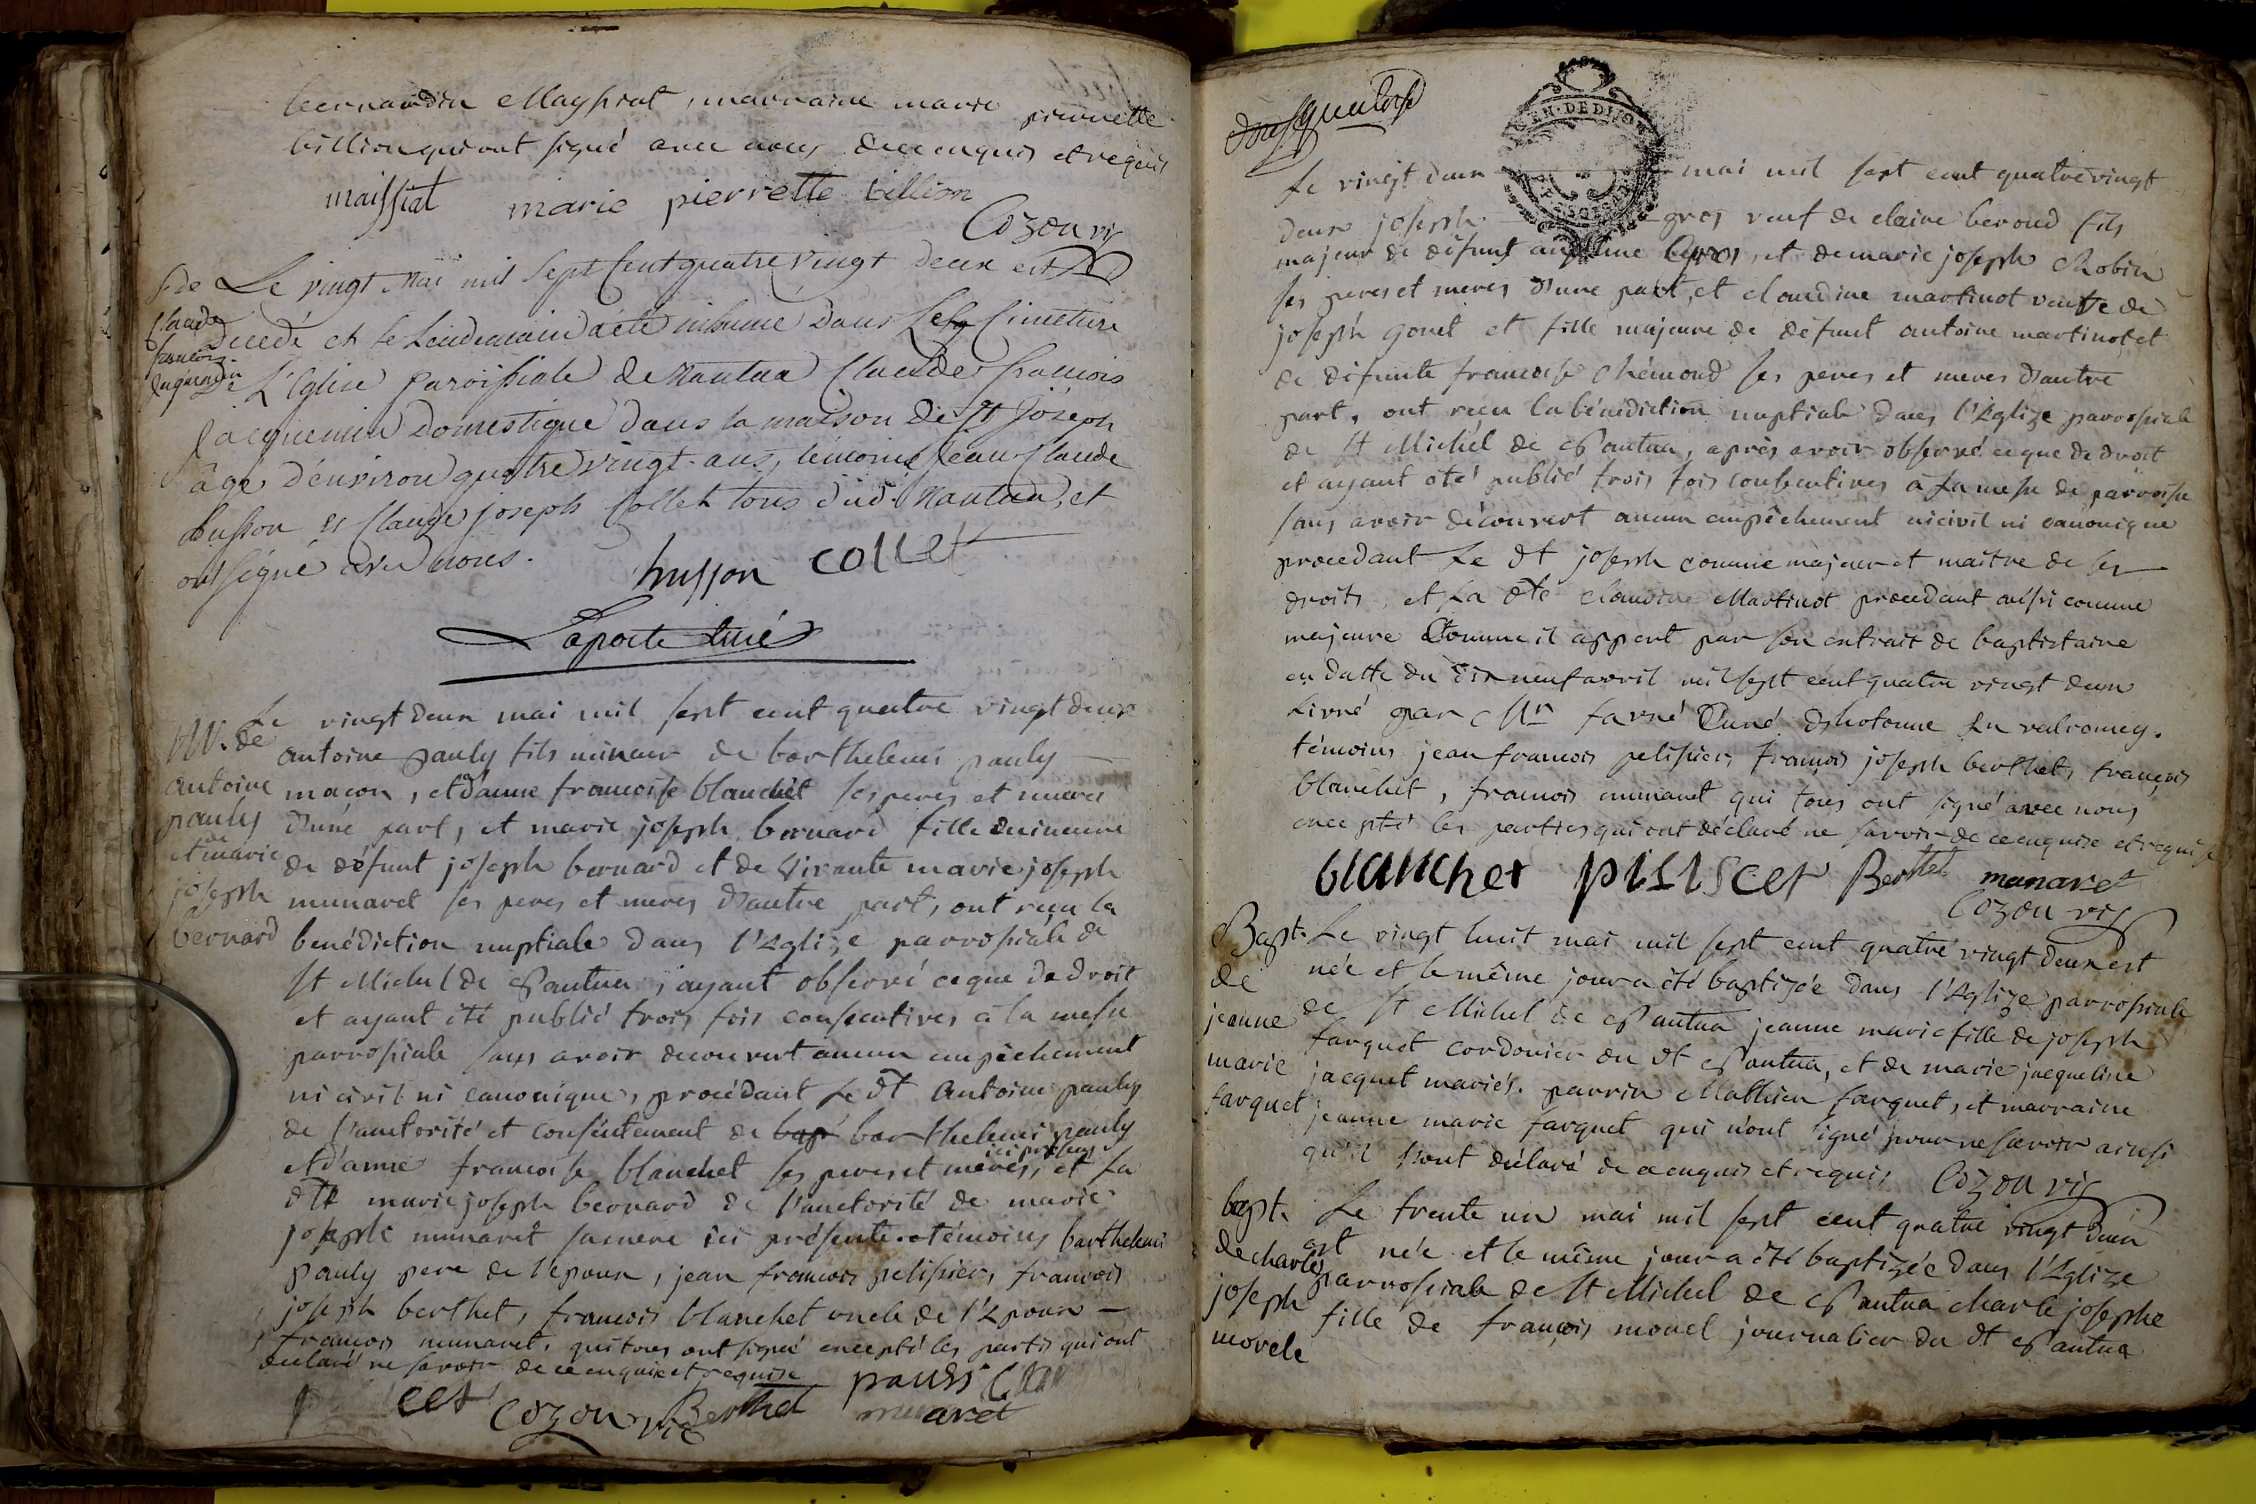 bernardin Mayssiat, marraine marie pierrette
billion qui ont signé avec nous de ce enquis et requis
maissiat marie pierrette billion
Cozon vic
Le vingt Mai mil Sept Cent quatre Vingt deux est
decedé et le Lendemain a été inhumé Dans Le Cimetiere
De L'Eglise Paroissiale de Nantua Claude François
Jacquemin Domestique dans la maison de St Joseph
âgé d'environ quatre vingt ans, témoins Jean Claude
husson et Claude joseph Collet tous dud. Nantua, et
ont signé avec nous.
husson collet
Laporte Curé
M. de
antoine
pauly
et marie
joseph
bernard
Le vingt deux mai mil sept cent quatre vingt deux
antoine pauly fils mineur de barthelemi pauly
maçon, et d'anne francoise blanchet ses peres et meres
d'une part, et marie joseph bernard fille mineure
de défunt joseph bernard et de vivante marie joseph
munaret ses peres et meres d'autre part, ont reçu la
benédiction nuptiale dans l'Eglize parrossiale de
st Michel de Nantua, ayant observé ce que de droit
et ayant été publié trois fois consecutives a la messe
parrossiale sans avoir decouvert aucun empêchement
ni civil ni canonique, procédant Le dt antoine pauly
de l'auctorité et consentement de barthelemi pauly
et d'anne francoise blanchet ses peres et meres, et la
dte marie joseph bernard de l'auctorité de marie
joseph munaret sa mere ici présente. témoins barthelemi
pauly pere de l'epoux, jean francois pelissier, francois
joseph berthet, francois blanchet oncle de l'Epoux
francois munaret, qui tous ont signé excepté les partis qui ont
declaré ne savoir de ce enquise et requise
cet cozon vic Berthet pauly
munaret
Le vingt deux mai mil sept cent quatre vingt
deux joseph gros veuf de claire beroud fils
majeur de défunt Gros, et de marie joseph Robin
ses peres et meres d'une part, et claudine martinot veuve de
joseph gonet et fille majeure de défunt antoine martinot et
de défunte francoise Chémond ses peres et meres d'autre
part, ont reçu la bénédiction nuptiale dans l'Eglize parrossiale
de St Michel de Nantua, après avoir observé ce que de droit
et ayant été publié trois fois consecutives a la messe de parroisse
sans avoir découvert aucun empêchement ni civil ni canonique
procedant Le dt joseph comme majeur et maitre de ses
droits, et La dte claudine Martinot procedant aussi comme
majeure Comme il appert par son extrait de baptistaire
en datte du dix neuf avril mil sept cent quatre vingt deux
Livré par Mr favré Curé d'hotonne En valromey.
témoins jean francois pelissier, françois joseph berthet, françois
blanchet, francois munaret qui tous ont signé avec nous
excepté les parties qui ont déclaré ne savoir de ce enquise et requise
blanchet piliscer Berthet munaret
Cozon vic
Bapt.
de
jeanne
marie
farquet
Le vingt huit mai mil sept cent quatre vingt deux est
née et le même jour a été baptizée dans l'Eglize parrossiale
de St Michel de Nantua jeanne marie fille de joseph
farquet cordonier du dt Nantua, et de marie jacqueline
jacquet mariés. parrin Mathieu farquet, et marraine
jeanne marie farquet qui n'ont signé pour ne savoir ainsi
qu'il l'ont déclaré de ce enquis et requis Cozon vic
bapt.
de charle
joseph
morele
Le trente un mai mil sept cent quatre vingt deux
est née et le même jour a été baptizée dans l'Eglize
parrossiale de St Michel de Nantua charle josephe
fille de françois morel journalier du dt Nantua